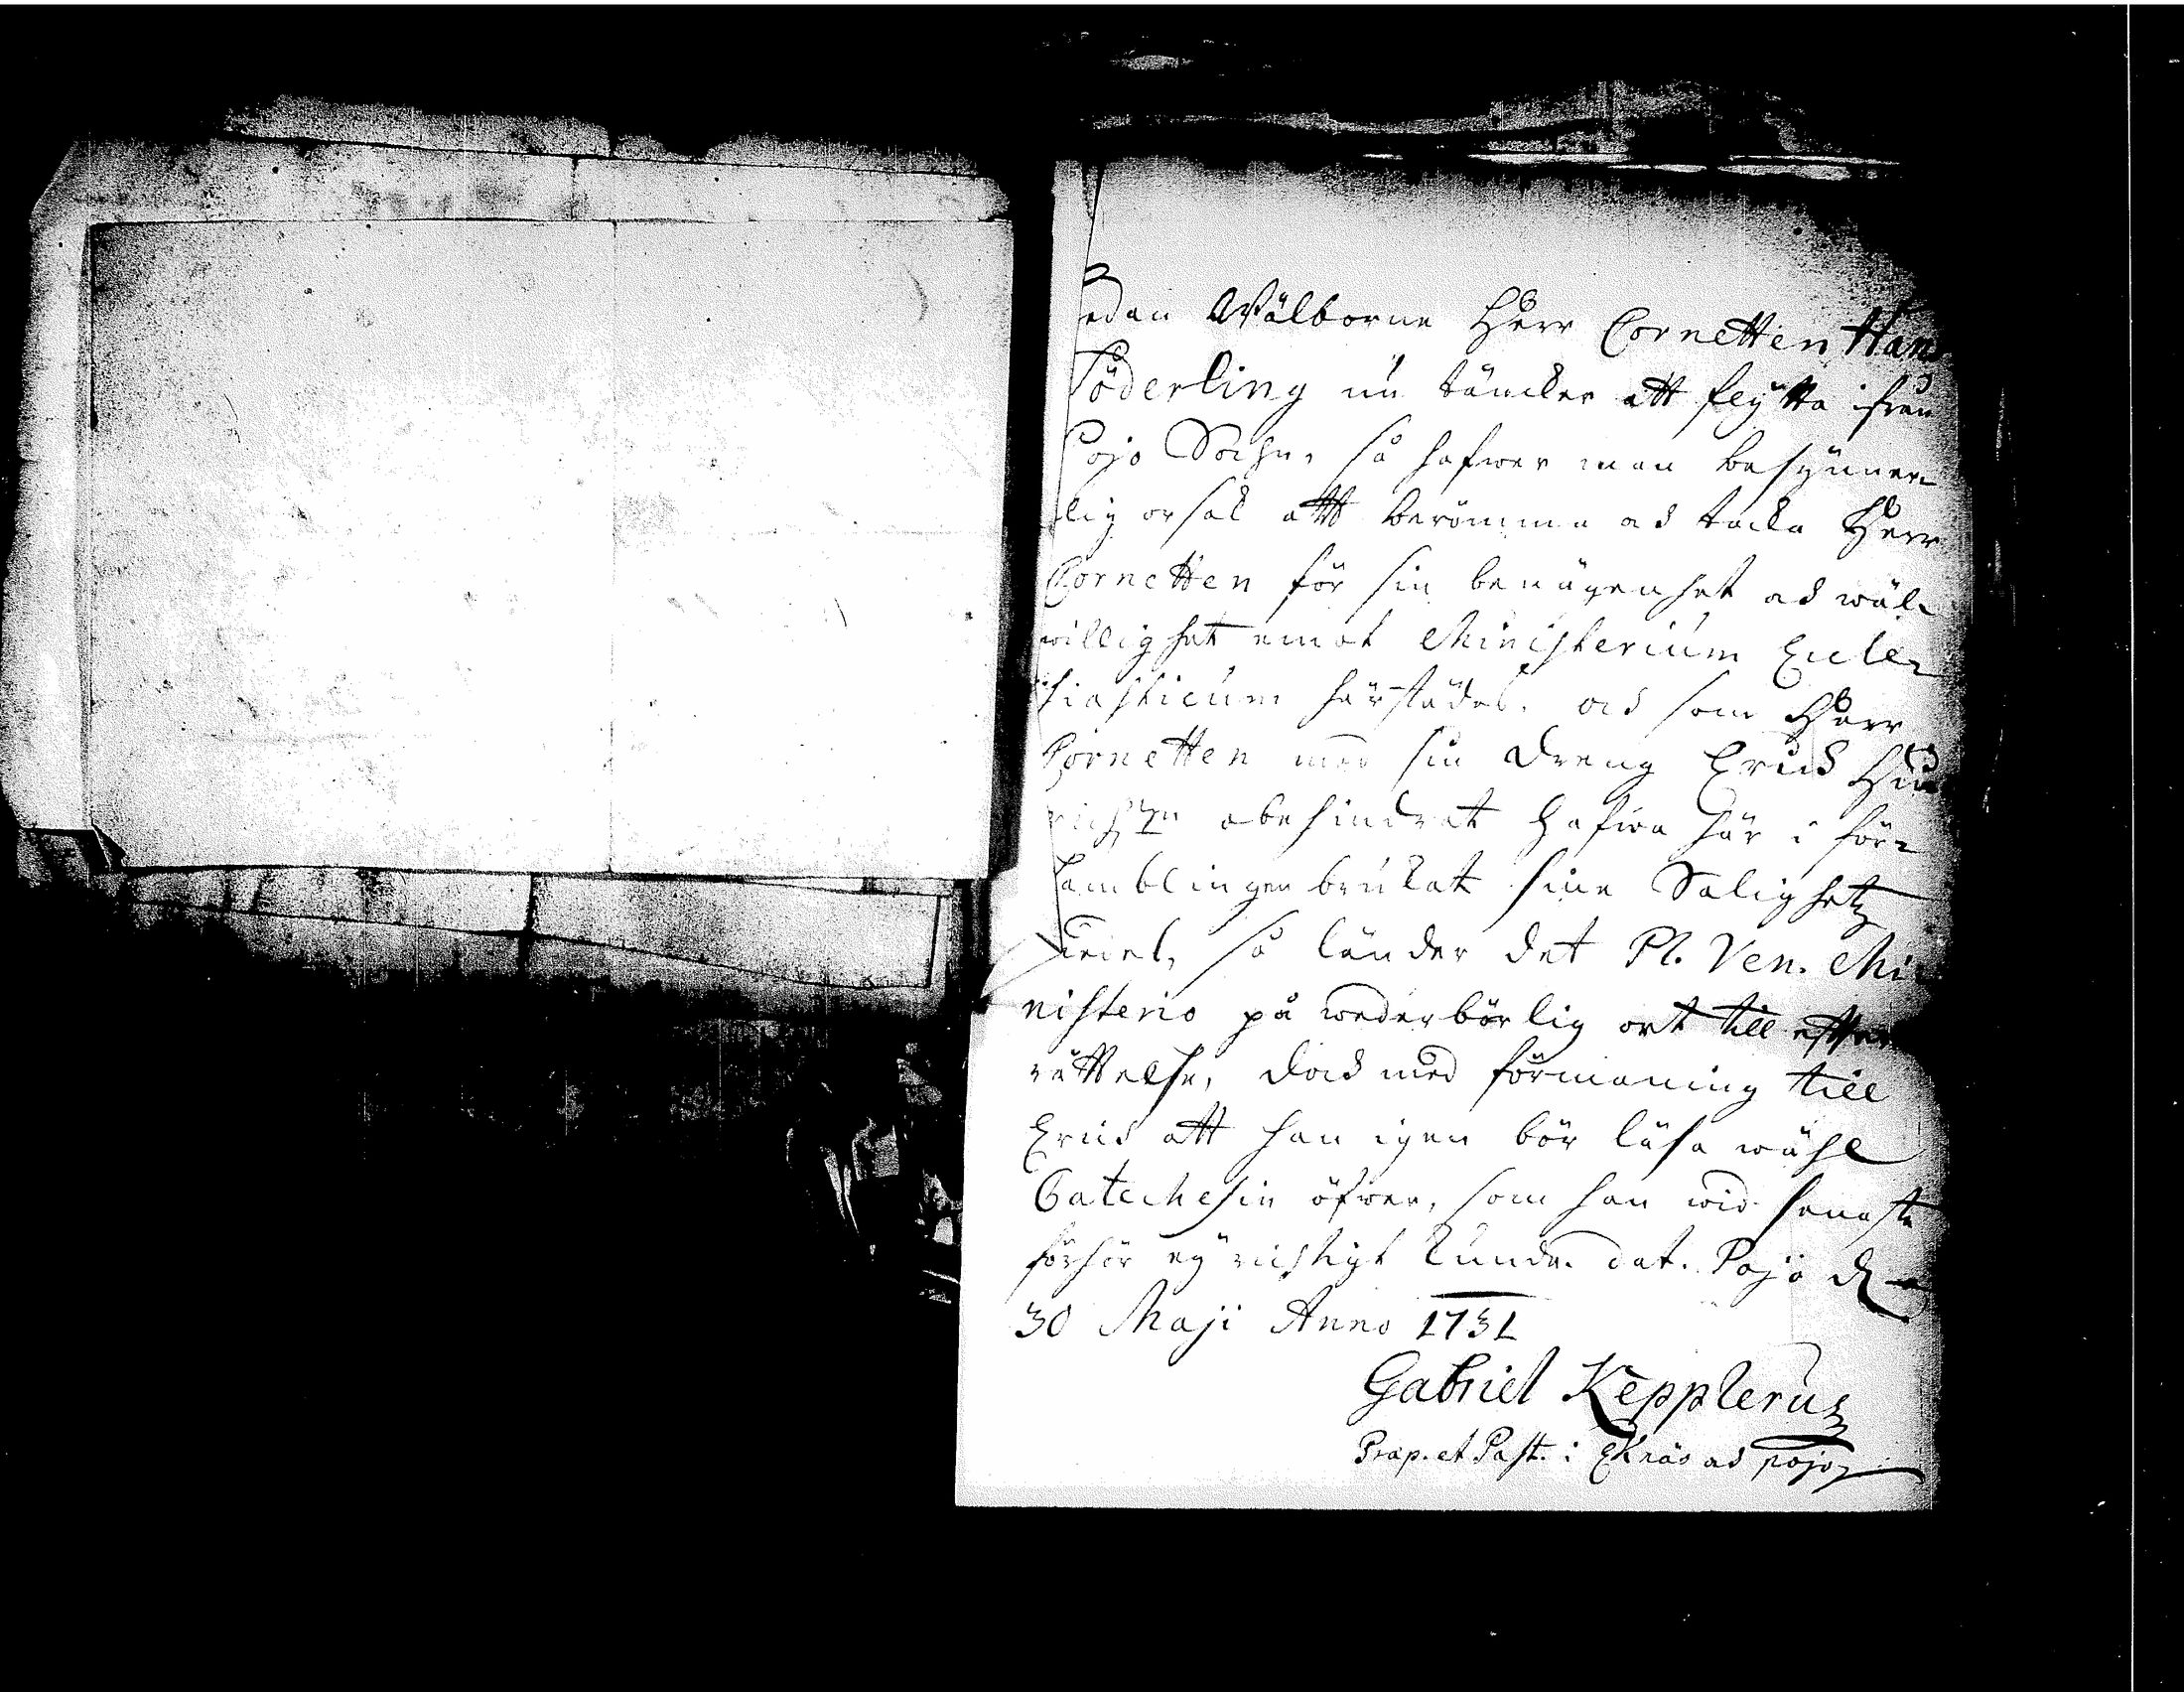 edan Wälborne Herr Cornetten Han
Söderling nu täncker att flytta ifrån
Pojo Sochn, så hafwer man besynner-
lig orsak att berömma och tacka Herr
Cornetten för sin benägenhet och wäl-
willighet emot Ministerium Eccle-
siasticum härstädes. och som Herr
Cornetten med sin dreng Erich Hin
obehindrat hafwa här i för-
samblingen brukat sine Salighetz
medel, så länder det Pl. Ven. Mi-
nisterio på wederbörlig ort till efter
rättelse, doch med förmaning till
Erich att han igen bör läsa wähl
Catechesin öfwer, som han wid senaste
förhör ey richtigt kunde. dat. Pojo d
30 Maji Anno 1731
Gabriel Kepplerus
Præp. et Past. i Eknäs och Pojo